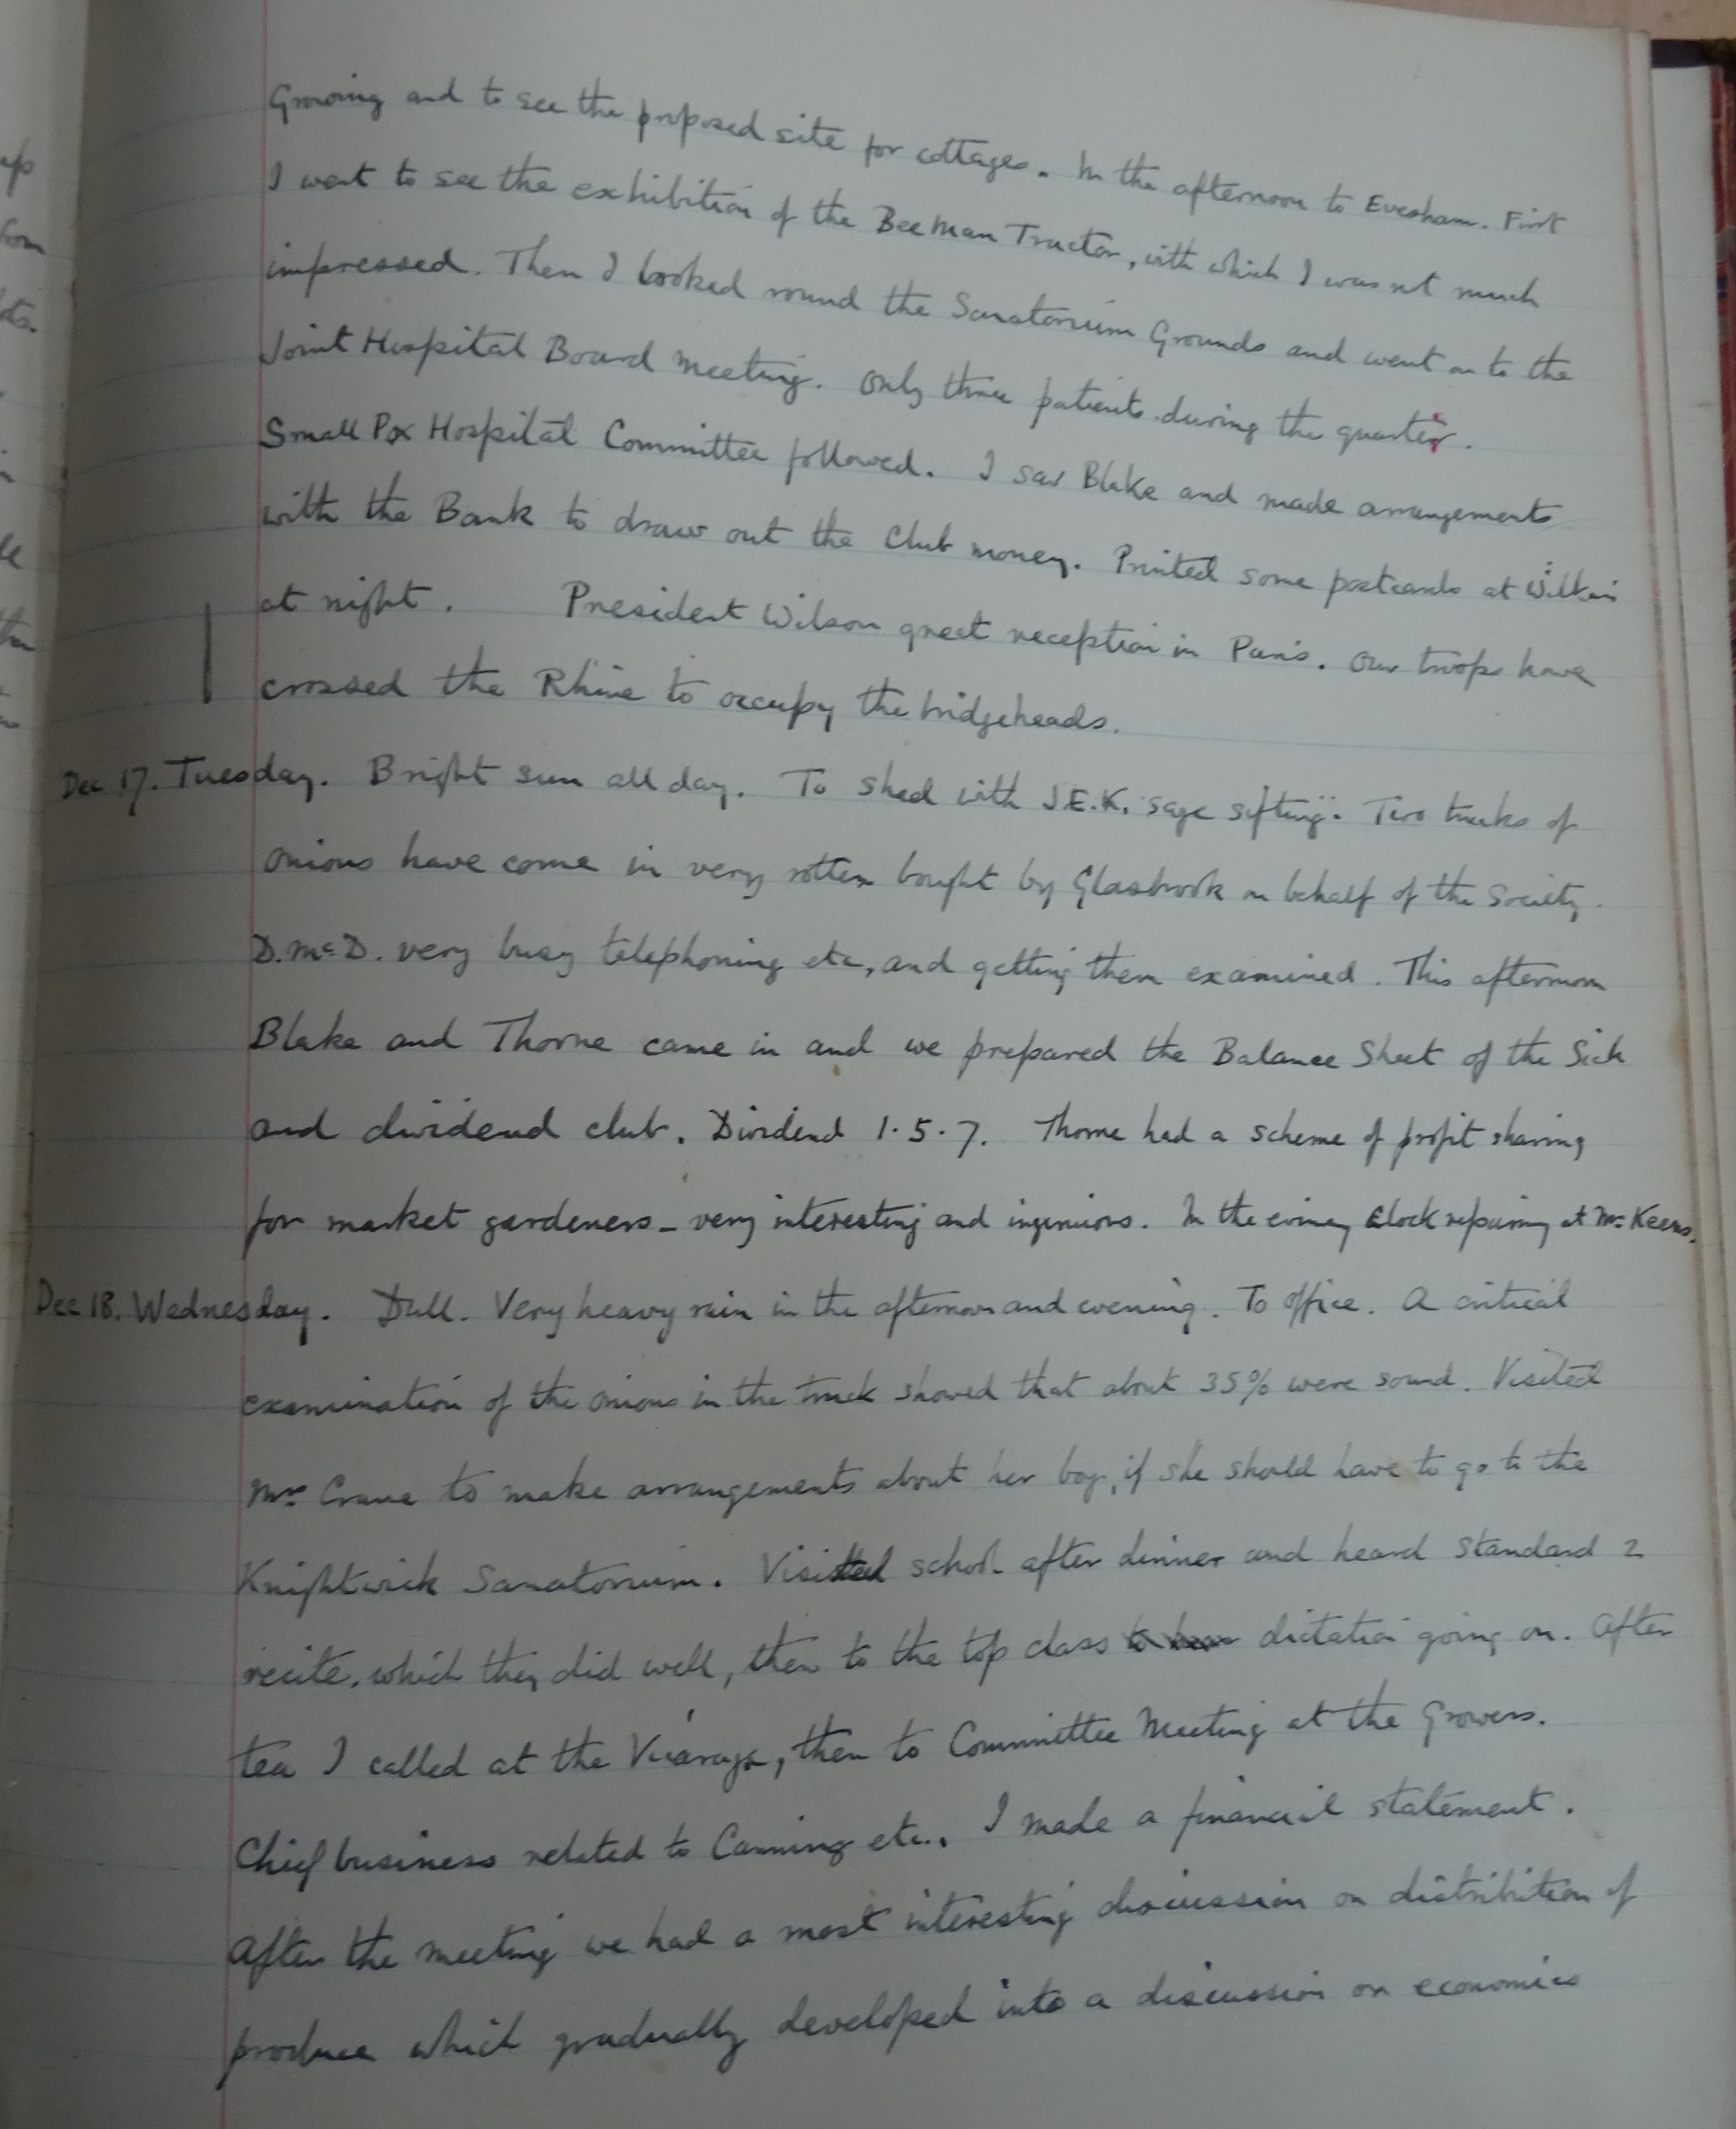 Growing and to see the proposed site for cottages. In the afternoon to Evesham. First
I went to see the exhibition of the Beeman Tractor, with which I was not much
impressed. Then I looked round the Sanatorium Grounds and went on to the
Joint Hospital Board Meeting. Only three patients during the quarter.
Small Pox Hospital Committee followed. I saw Blake and made arrangements
with the Bank to draw out the Club money. Printed some postcards at
at night. President Wilson great reception in Paris. Our troops have
crossed the Rhine to occupy the bridgeheads.
Dec 17. Tuesday. Bright sun all day. To shed with J.E.K. "sage sifting". Two trucks of
onions have come in very rotten bought by Glasbrook on behalf of the Society.
D. McD. very busy telephoning etc, and getting them examined. This afternoon
Blake and Thorne came in and we prepared the Balance Sheet of the Sick
and dividend club. Dividend 1.5.7. Thorne had a scheme of profit sharing
for market gardeners - very interesting and ingenious. In the evening Clock repairing at Mr Keens.
Dec 18. Wednesday. Dull. Very heavy rain in the afternoon and evening. To office. A critical
examination of the onions in the truck showed that about 35% were sound. Visited
Mrs Crane to make arrangements about her boy, if she should have to go to the
Knightwick Sanatorium. Visited school after dinner and heard Standard 2
recite, which they did well, then to the top class dictation going on. After
tea I called at the Vicarage, then to Committee Meeting at the Growers.
Chief business related to Canning etc.. I made a financial statement.
After the meeting we had a most interesting discussion on distribution of
produce which gradually developed into a discussion on economics